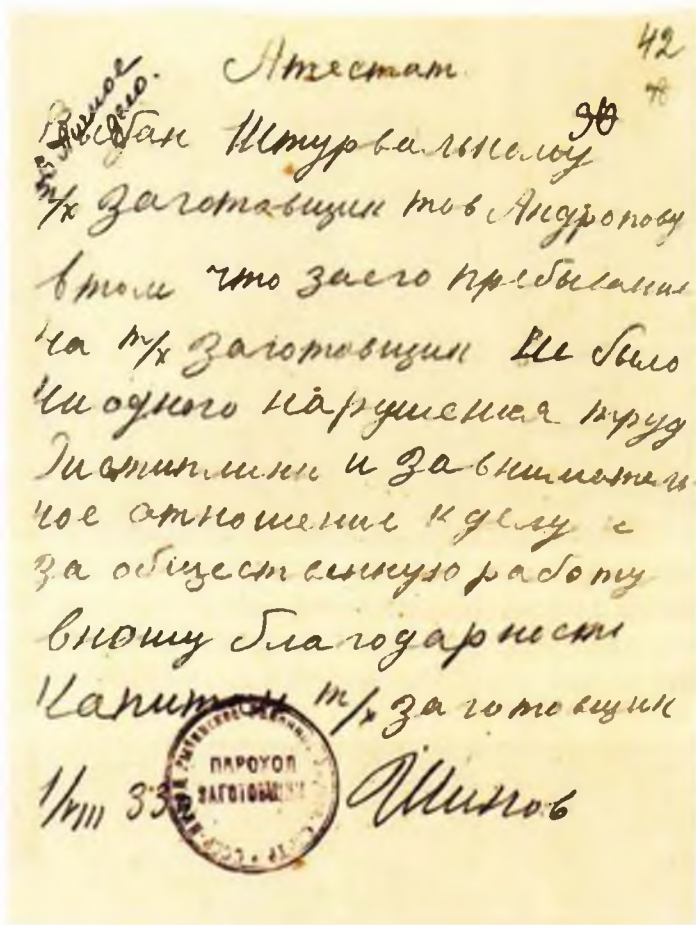 42
В личное
дело.
Аттестат
Выдан Штурвальному
т/х Заготовщик тов Андропову
в том что заего пребывание
На т/х Заготовщик Не было
Ни одного нарушения труд
Дистиплини и За внимотель
ное отношение к делу и
За общественную работу
вношу благодарности
Капитан т/х Заготовщик
1/VIII 33
Шипов
ПАРОХОД
ЗАГОТОВЩИК